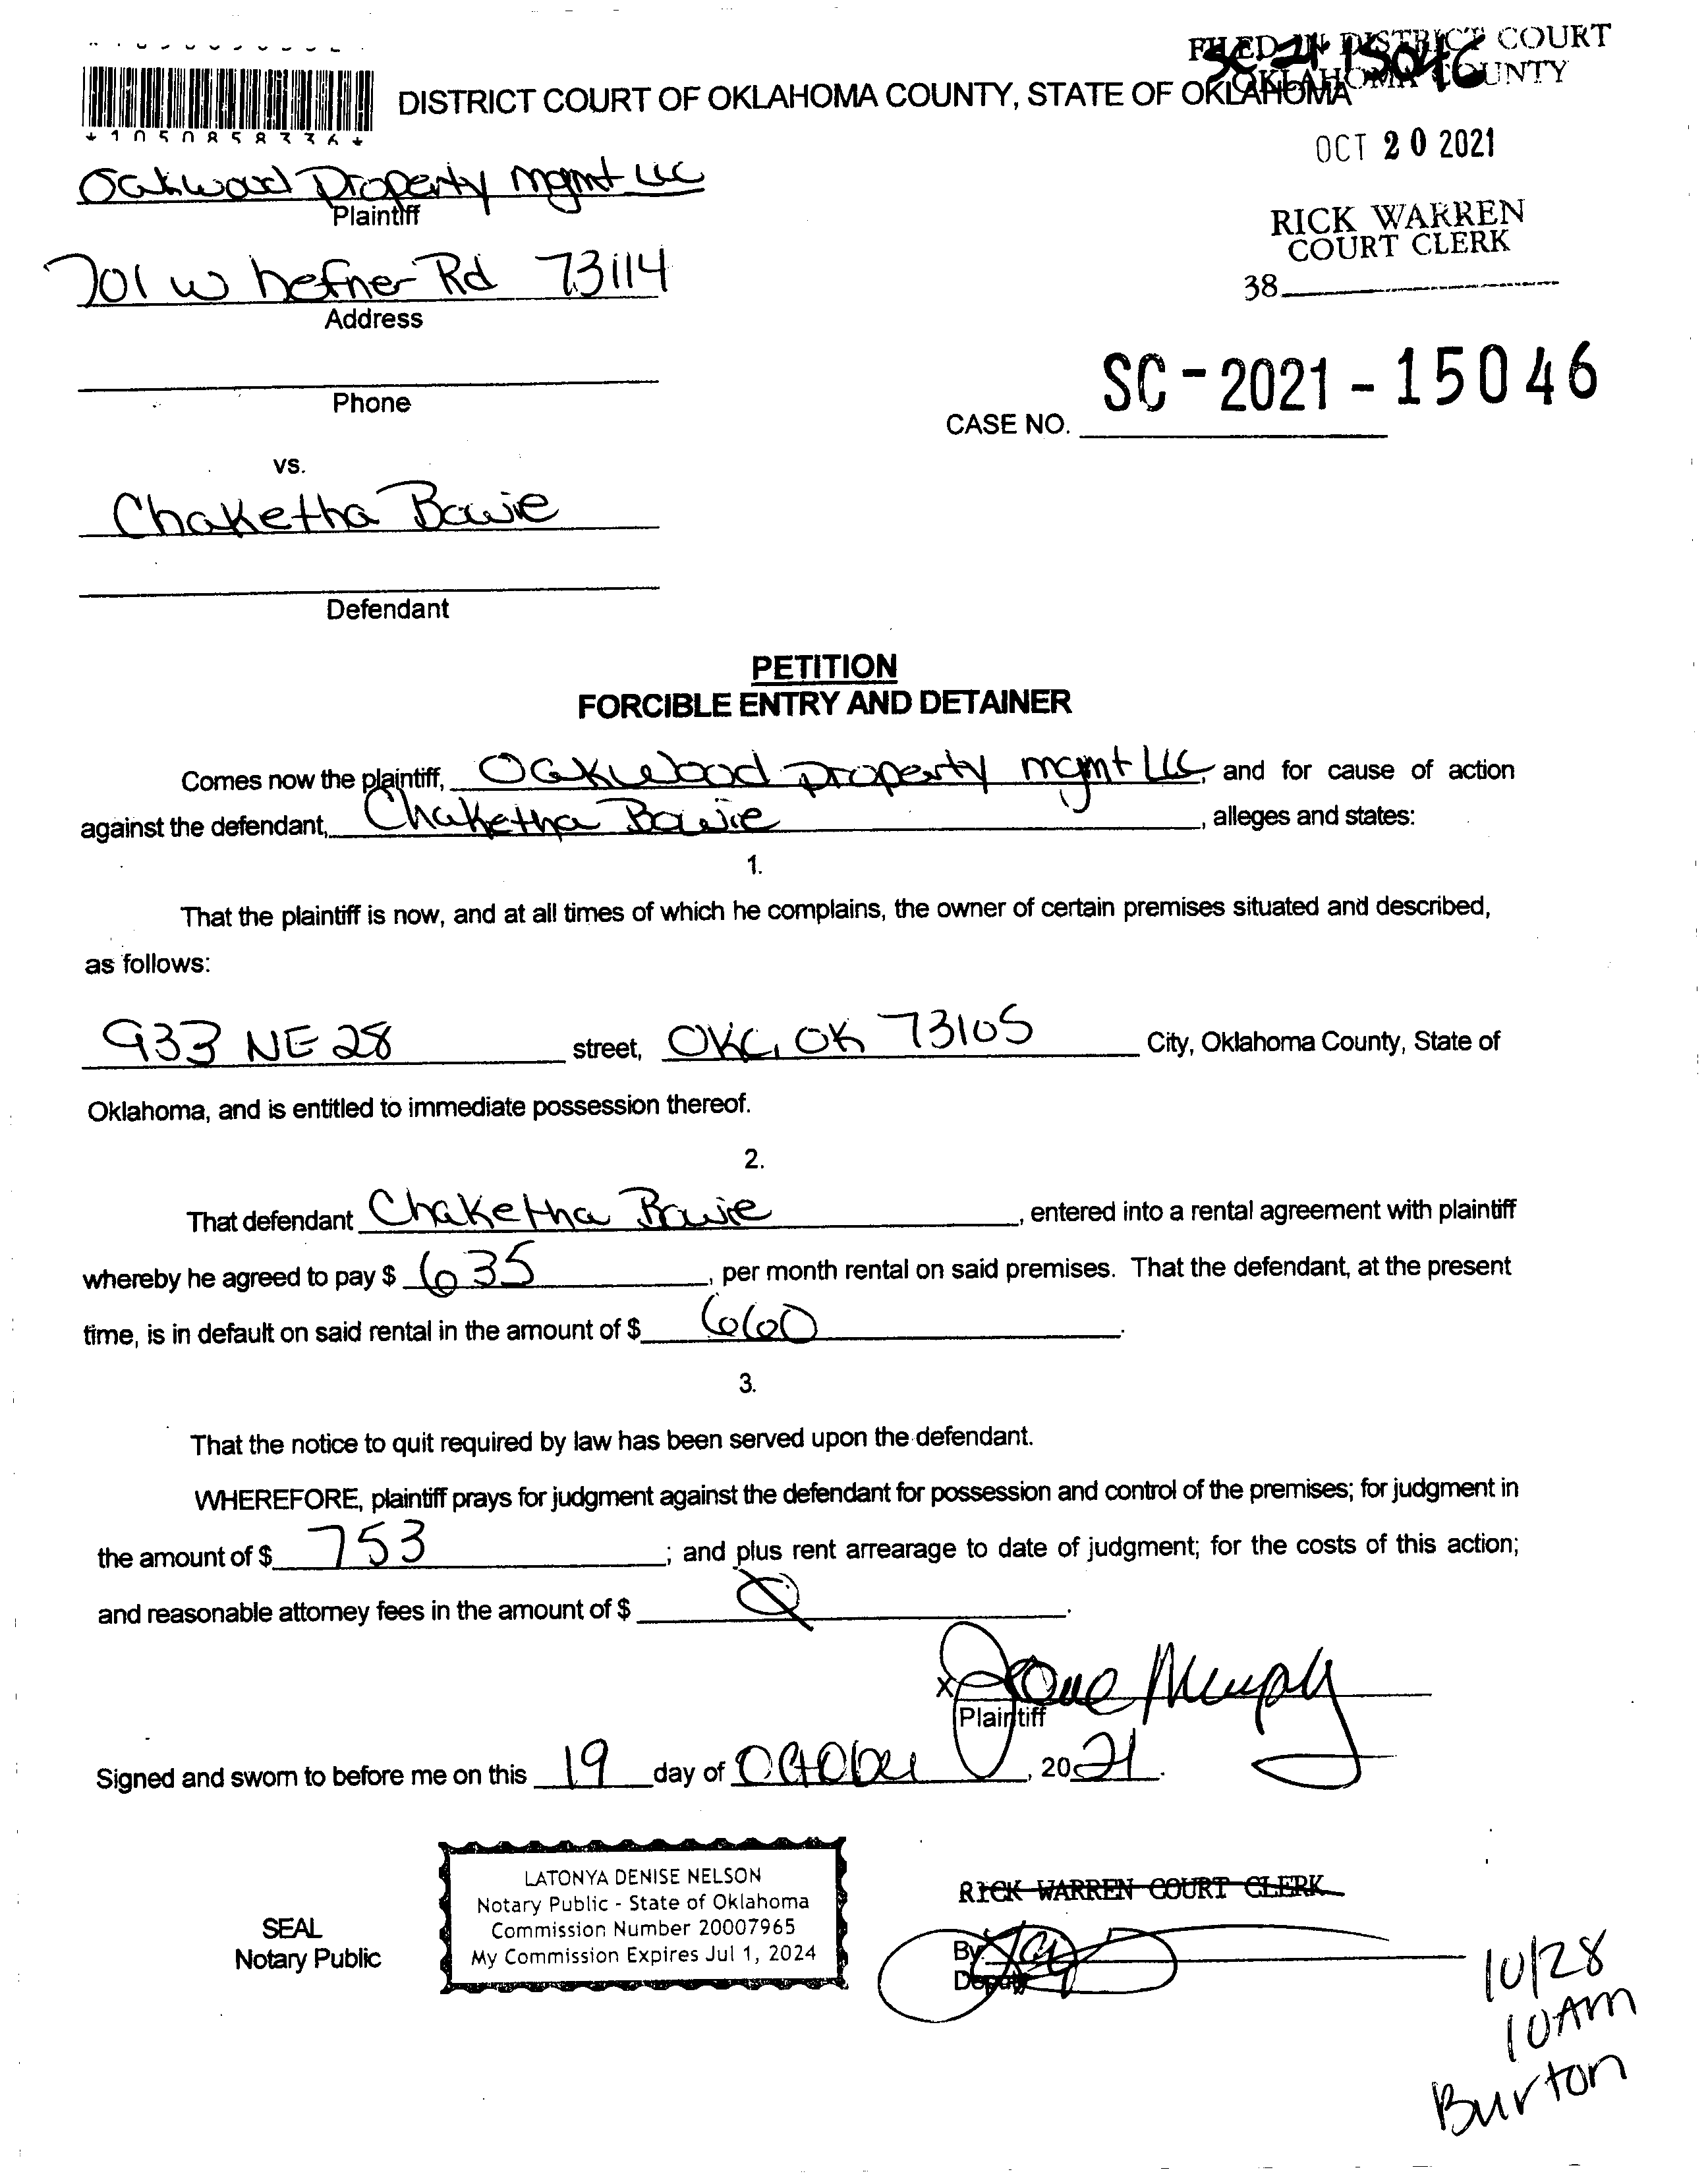 FILED IN DISTRICT COURT
OKLAHOMA COUNTY
SC-21-15046
DISTRICT COURT OF OKLAHOMA COUNTY, STATE OF OKLAHOMA
*1050858336*
OCT 20 2021
Oakwood Property mgmt LLC
Plaintiff
RICK WARREN
COURT CLERK
38
701 W hefner Rd 73114
Address
Phone
CASE NO. SC-2021-15046
vs.
Chaketha Bowie
Defendant
PETITION
FORCIBLE ENTRY AND DETAINER
Comes now the plaintiff, Oakwood property mgmt LLC, and for cause of action
against the defendant, Chaketha Bowie, alleges and states:
1.
That the plaintiff is now, and at all times of which he complains, the owner of certain premises situated and described,
as follows:
933 NE 28 street, OKC, OK 73105 City, Oklahoma County, State of
Oklahoma, and is entitled to immediate possession thereof.
2.
That defendant Chaketha Bowie, entered into a rental agreement with plaintiff
whereby he agreed to pay $ 635, per month rental on said premises. That the defendant, at the present
time, is in default on said rental in the amount of $ 660.
3.
That the notice to quit required by law has been served upon the defendant.
WHEREFORE, plaintiff prays for judgment against the defendant for possession and control of the premises; for judgment in
the amount of $ 753; and plus rent arrearage to date of judgment; for the costs of this action;
and reasonable attorney fees in the amount of $ 0.
X Murphy
Plaintiff
Signed and sworn to before me on this 19 day of October, 2021.
LATONYA DENISE NELSON
Notary Public - State of Oklahoma
Commission Number 20007965
My Commission Expires Jul 1, 2024
SEAL
Notary Public
RICK WARREN COURT CLERK
By
Deputy
10/28
10AM
Burton